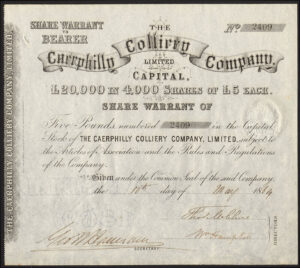 SHARE WARRANT
TO
BEARER
No. 2409
THE
Caerphilly Colliery Company,
LIMITED
CAPITAL,
£20,000 IN 4,000 SHARES OF £5 EACH.
SHARE WARRANT OF
Five Pounds numbered 2409 in the Capital
Stock of THE CAERPHILLY COLLIERY COMPANY, LIMITED, subject to
the Articles of Association and the Rules and Regulations
of the Company.
Given under the Common Seal of the said Company
the day of May 1864
DIRECTORS
THE CAERPHILLY COLLIERY COMPANY, LIMITED.